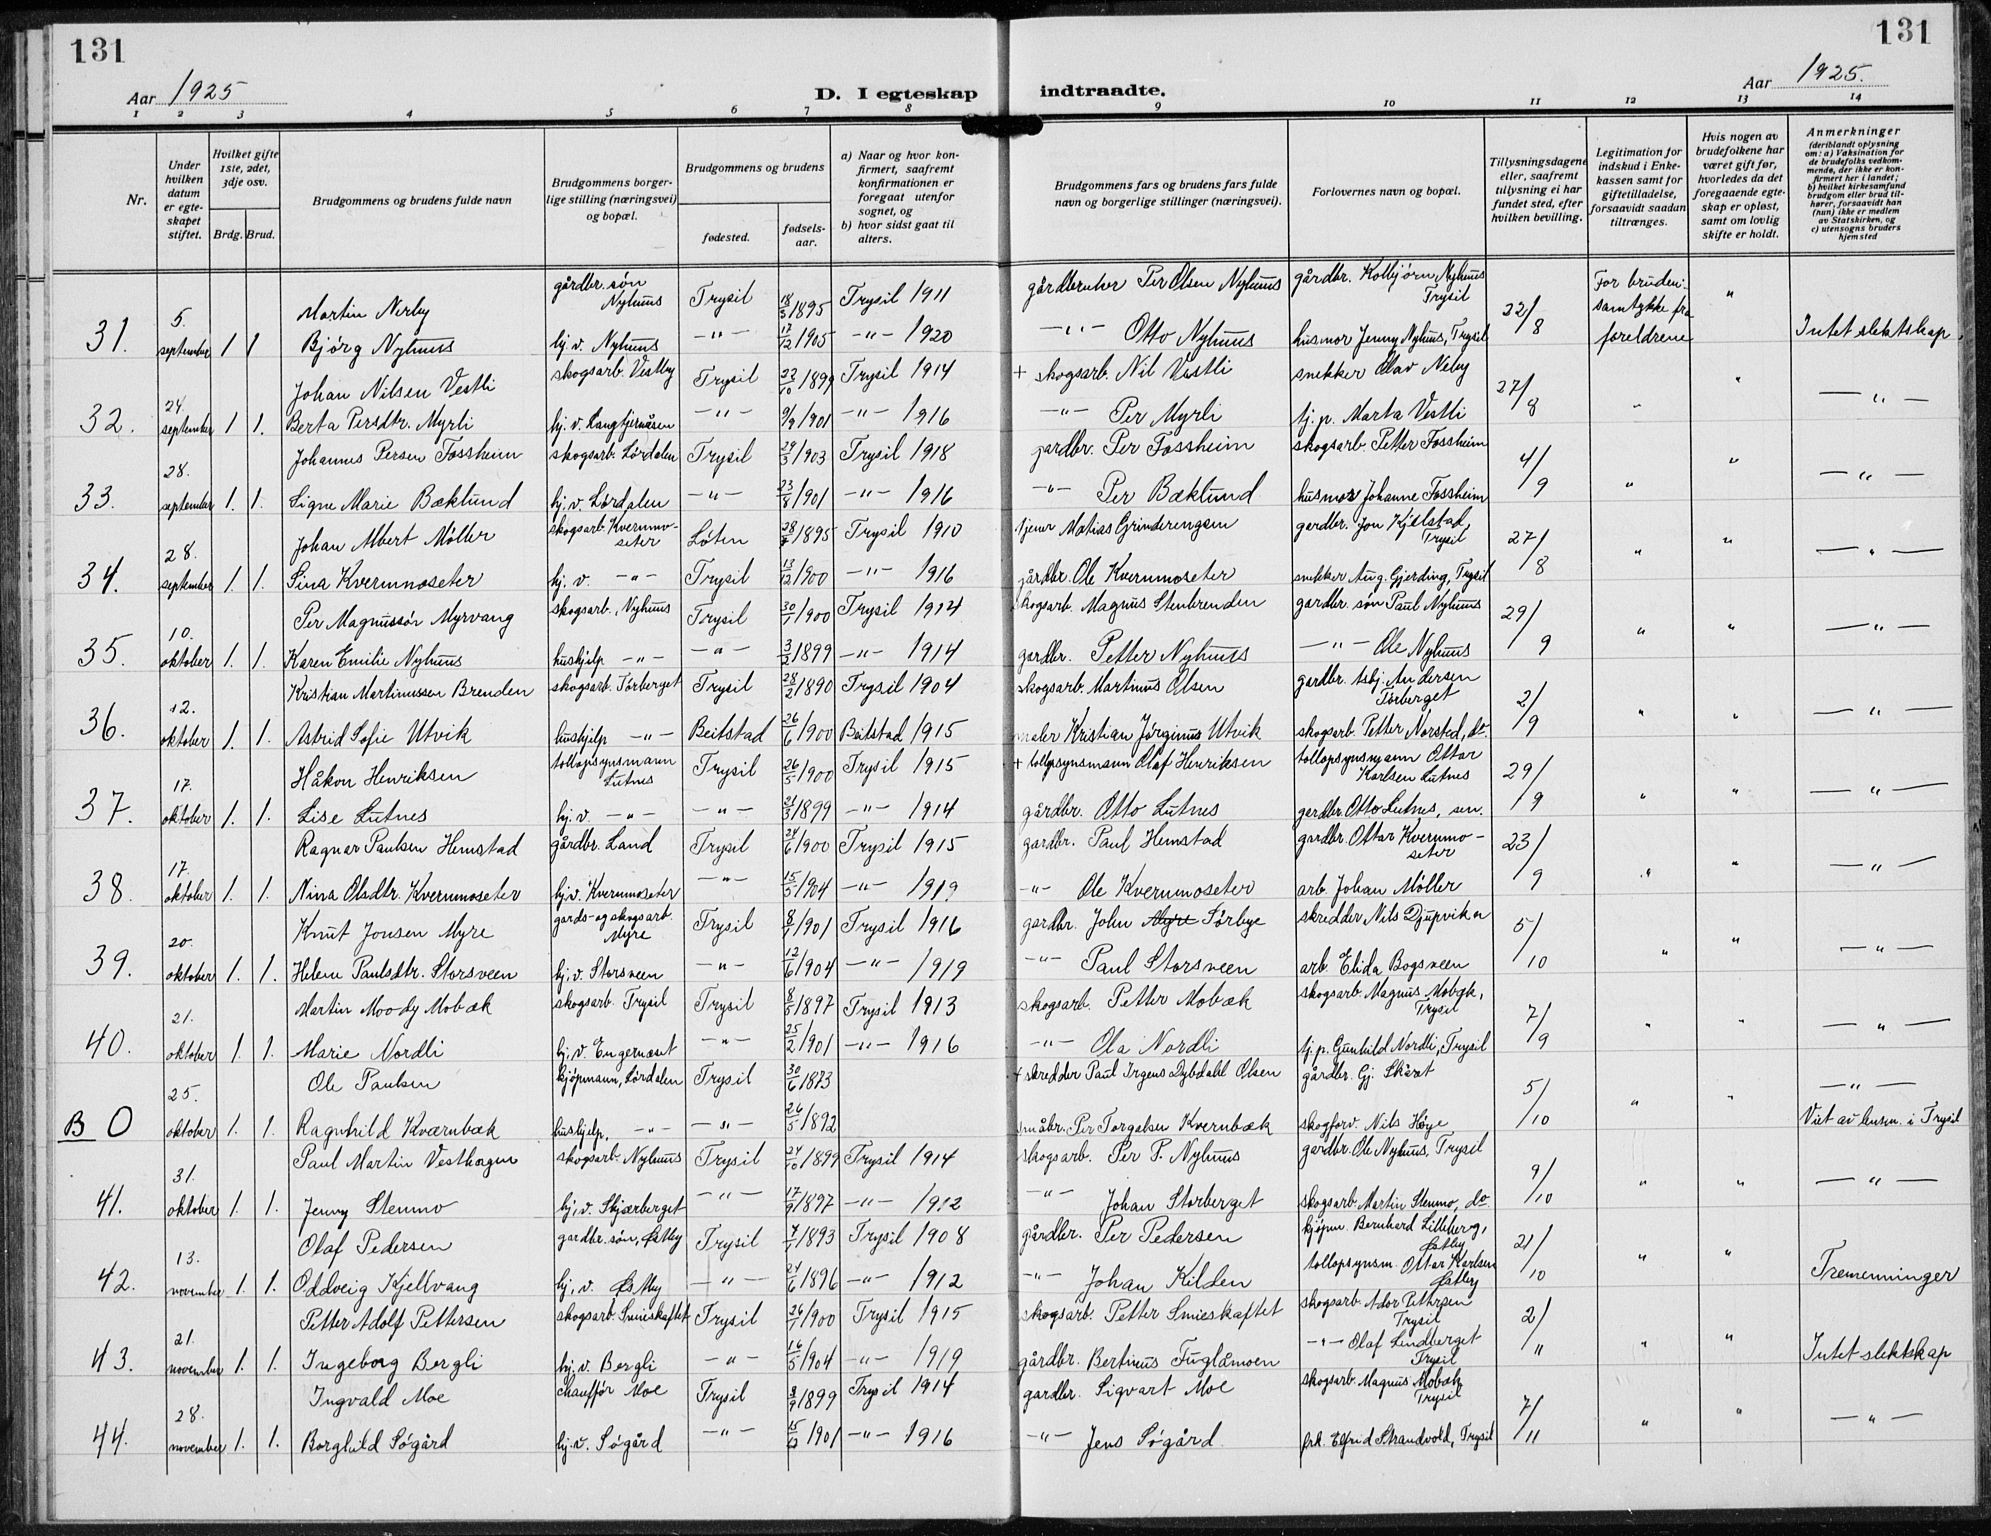 131
131
Aar 1925
D. I egteskap indtraadte.
Aar 1925.
1 2 3 4 5 6 7 8 9 10 11 12 13 14
Nr.
Under hvilken datum er egteskapet stiftet.
Hvilket gifte 1ste, 2det, 3dje osv.
Brdg. Brud.
Brudgommens og brudens fulde navn
Brudgommens borgerlige stilling (næringsvei) og bopæl.
Brudgommens og brudens
fødested.
fødselsaar.
a) Naar og hvor konfirmert, saafremt konfirmationen er foregaat utenfor sognet, og
b) hvor sidst gaat til alters.
Brudgommens fars og brudens fars fulde navn og borgerlige stillinger (næringsvei).
Forlovernes navn og bopæl.
Tillysningsdagene eller, saafremt tillysning ei har fundet sted, efter hvilken bevilling.
Legitimation for indskud i Enkekassen samt for giftetilladelse, forsaavidt saadan tiltrænges.
Hvis nogen av brudefolkene har været gift før, hvorledes da det foregaaende egteskap er opløst, samt om lovlig skifte er holdt.
Anmerkninger (deriblandt oplysning om: a) Vaksination for de brudefolks vedkommende, der ikke er konfirmert her i landet; b) hvilket kirkesamfund brudgom eller brud tilhører, forsaavidt han (hun) ikke er medlem av Statskirken, og c) utensogns bruders hjemsted
Martin Nerby gårdbr. søn Nyhuus Trysil 18/3 1895 Trysil 1911 gårdbruker Per Olsen Nyhuus gårdbr. Kolbjørn Nyhuus Trysil
31. 5. september 1 1 Bjørg Nyhuus hj. v. Nyhuus -"- 17/12 1905 -"- 1920 -"- Otto Nyhuus husmor Jenny Nyhuus, Trysil 22/8 For bruden: samtykke fra foreldrene " Intet slektskap
Johan Nilsen Vestli skogsarb. Vestby Trysil 22/10 1899 Trysil 1914 + skogsarb. Nil Vestli snekker Olav Neby
32. 24. september 1 1. Berta Persdtr. Myrli hj. v. Langtjernåsen -"- 9/9 1901 -"- 1916 -"- Per Myrli tj. p. Marta Vestli 27/8 " " -"-
Johannes Persen Fossheim skogsarb. Lørdalen Trysil 29/3 1903 Trysil 1918 gardbr. Per Fossheim skogsarb. Petter Fossheim
33. 28. september 1. 1. Signe Marie Bæklund hj. v. Lørdalen -"- 23/8 1901 -"- 1916 -"- Per Bæklund husmor Johanne Fossheim 4/9 " " -"-
Johan Albert Möller skogsarb. Kvernmoseter Løten 28/7 1895 Trysil 1910 tjener Matias Grinderengen gardbr. Jon Kjelstad, Trysil
34. 28. september 1. 1. Sina Kvernmoseter hj. v. -"- Trysil 13/12 1900 -"- 1916 gårdbr. Ole Kvernmoseter snekker Aug. Gjerding, Trysil 27/8 " " -"-
Per Magnussøn Myrvang skogsarb., Nyhuus Trysil 30/1 1900 Trysil 1914 skogsarb. Magnus Stenbrenden gardbr. søn Paul Nyhuus
35. 10. oktober 1. 1. Karen Emilie Nyhuus hushjelp -"- -"- 3/2 1899 -"- 1914 gardbr. Petter Nyhuus -"- Ole Nyhuus 29/9 " " -"-
Kristian Martinussen Brenden skogsarb. Tørberget Trysil 28/2 1890 Trysil 1904 skogsarb. Martinus Olsen gardbr. Asbj. Andersen Tørberget
36. 12. oktober 1. 1. Astrid Sofie Utvik hushjelp -"- Beitstad 26/6 1900 Beitstad 1915 maler Kristian Jørginus Utvik skogsarb. Petter Norsted, do. 2/9 " " -"-
Håkon Henriksen tollopsynsmann Lutnes Trysil 26/5 1900 Trysil 1915 + tollopsynsmann Olaf Henriksen tollopsynsmann Ottar Karlsen Lutnes
37. 17. oktober 1. 1. Lise Lutnes hj. v. -"- -"- 21/3 1899 -"- 1914 gårdbr. Otto Lutnes gardbr. Otto Lutnes, sen. 29/9 " " -"-
Ragnar Paulsen Hemstad gårdbr. Land Trysil 24/6 1900 Trysil 1915 gardbr. Paul Hemstad gardbr. Ottar Kvernmoseter
38. 17. oktober 1. 1. Nina Olsdtr. Kvernmoseter hj. v. Kvernmoseter -"- 15/5 1904 -"- 1919 -"- Ole Kvernmoseter arb. Johan Möller 23/9 " " -"-
Knut Jonsen Myre gards- og skogsarb. Myre Trysil 8/1 1901 Trysil 1916 gardbr. John Myre Sørbye skredder Nils Djupvika
39. 20. oktober 1. 1. Helene Paulsdtr. Storsveen hj. v. Storsveen -"- 12/6 1904 -"- 1919 -"- Paul Storsveen arb. Elida Bogsveen 5/10 " " -"-
Martin Moody Mobæk skogsarb. Trysil Trysil 8/5 1897 Trysil 1913 skogsarb. Petter Mobæk skogsarb. Magnus Mobæk, Trysil
40. 21. oktober 1. 1. Marie Nordli hj. v. Engerneset -"- 25/2 1901 -"- 1916 -"- Ola Nordli tj. p. Gunhild Nordli, Trysil 7/9 " " -"-
Ole Paulsen kjøpmann, Lørdalen Trysil 30/6 1873 + skredder Paul Irgens Dybdahl Olsen gårdbr. Gj. Skåret
B O 25. oktober 1. 1. Ragnhild Kværnbæk hushjelp, -"- -"- 26/5 1892 småbr. Per Torgelsen Kvernbæk skogforv. Nils Høye 5/10 " " -"- Viet av lensm. i Trysil
Paul Martin Vesthagen skogsarb. Nyhuus Trysil 24/10 1899 Trysil 1914 skogsarb. Per P. Nyhuus gardbr. Ole Nyhuus, Trysil
41. 31. oktober 1. 1. Jenny Stenmo hj. v. Skjærberget -"- 17/9 1897 -"- 1912 -"- Johan Storberget skogsarb. Martin Stenmo, do. 9/10 " " -"-
Olaf Pedersen gardbr. søn, Østby Trysil 7/1 1893 Trysil 1908 gårdbr. Per Pedersen kjøpm. Bernhard Lilleberg, Østby
42. 13. november 1. 1. Oddveig Kjellvang hj. v. Østby -"- 24/6 1896 -"- 1912 -"- Johan Kilden tollopsynsm. Ottar Karlsen Østby 21/10 " " Tremenninger
Petter Adolf Pettersen skogsarb. Smieskaftet Trysil 26/1 1900 Trysil 1915 skogsarb. Petter Smieskaftet skogsarb. Ador Pettersen Trysil
43. 21. november 1. 1. Ingeborg Bergli hj. v. Bergli -"- 16/5 1904 -"- 1919 gårdbr. Bertinus Fuglåmoen -"- Olaf Lindberget Trysil 2/11 " " Intet slektskap
Ingvald Moe chauffør Moe Trysil 8/9 1899 Trysil 1914 gardbr. Sigvart Moe skogsarb. Magnus Mobæk Trysil
44. 28. november 1. 1. Borghild Søgård hj. v. Søgård -"- 15/12 1901 -"- 1916 -"- Jens Søgård frk. Elfrid Strandvold, Trysil 7/11 " " -"-